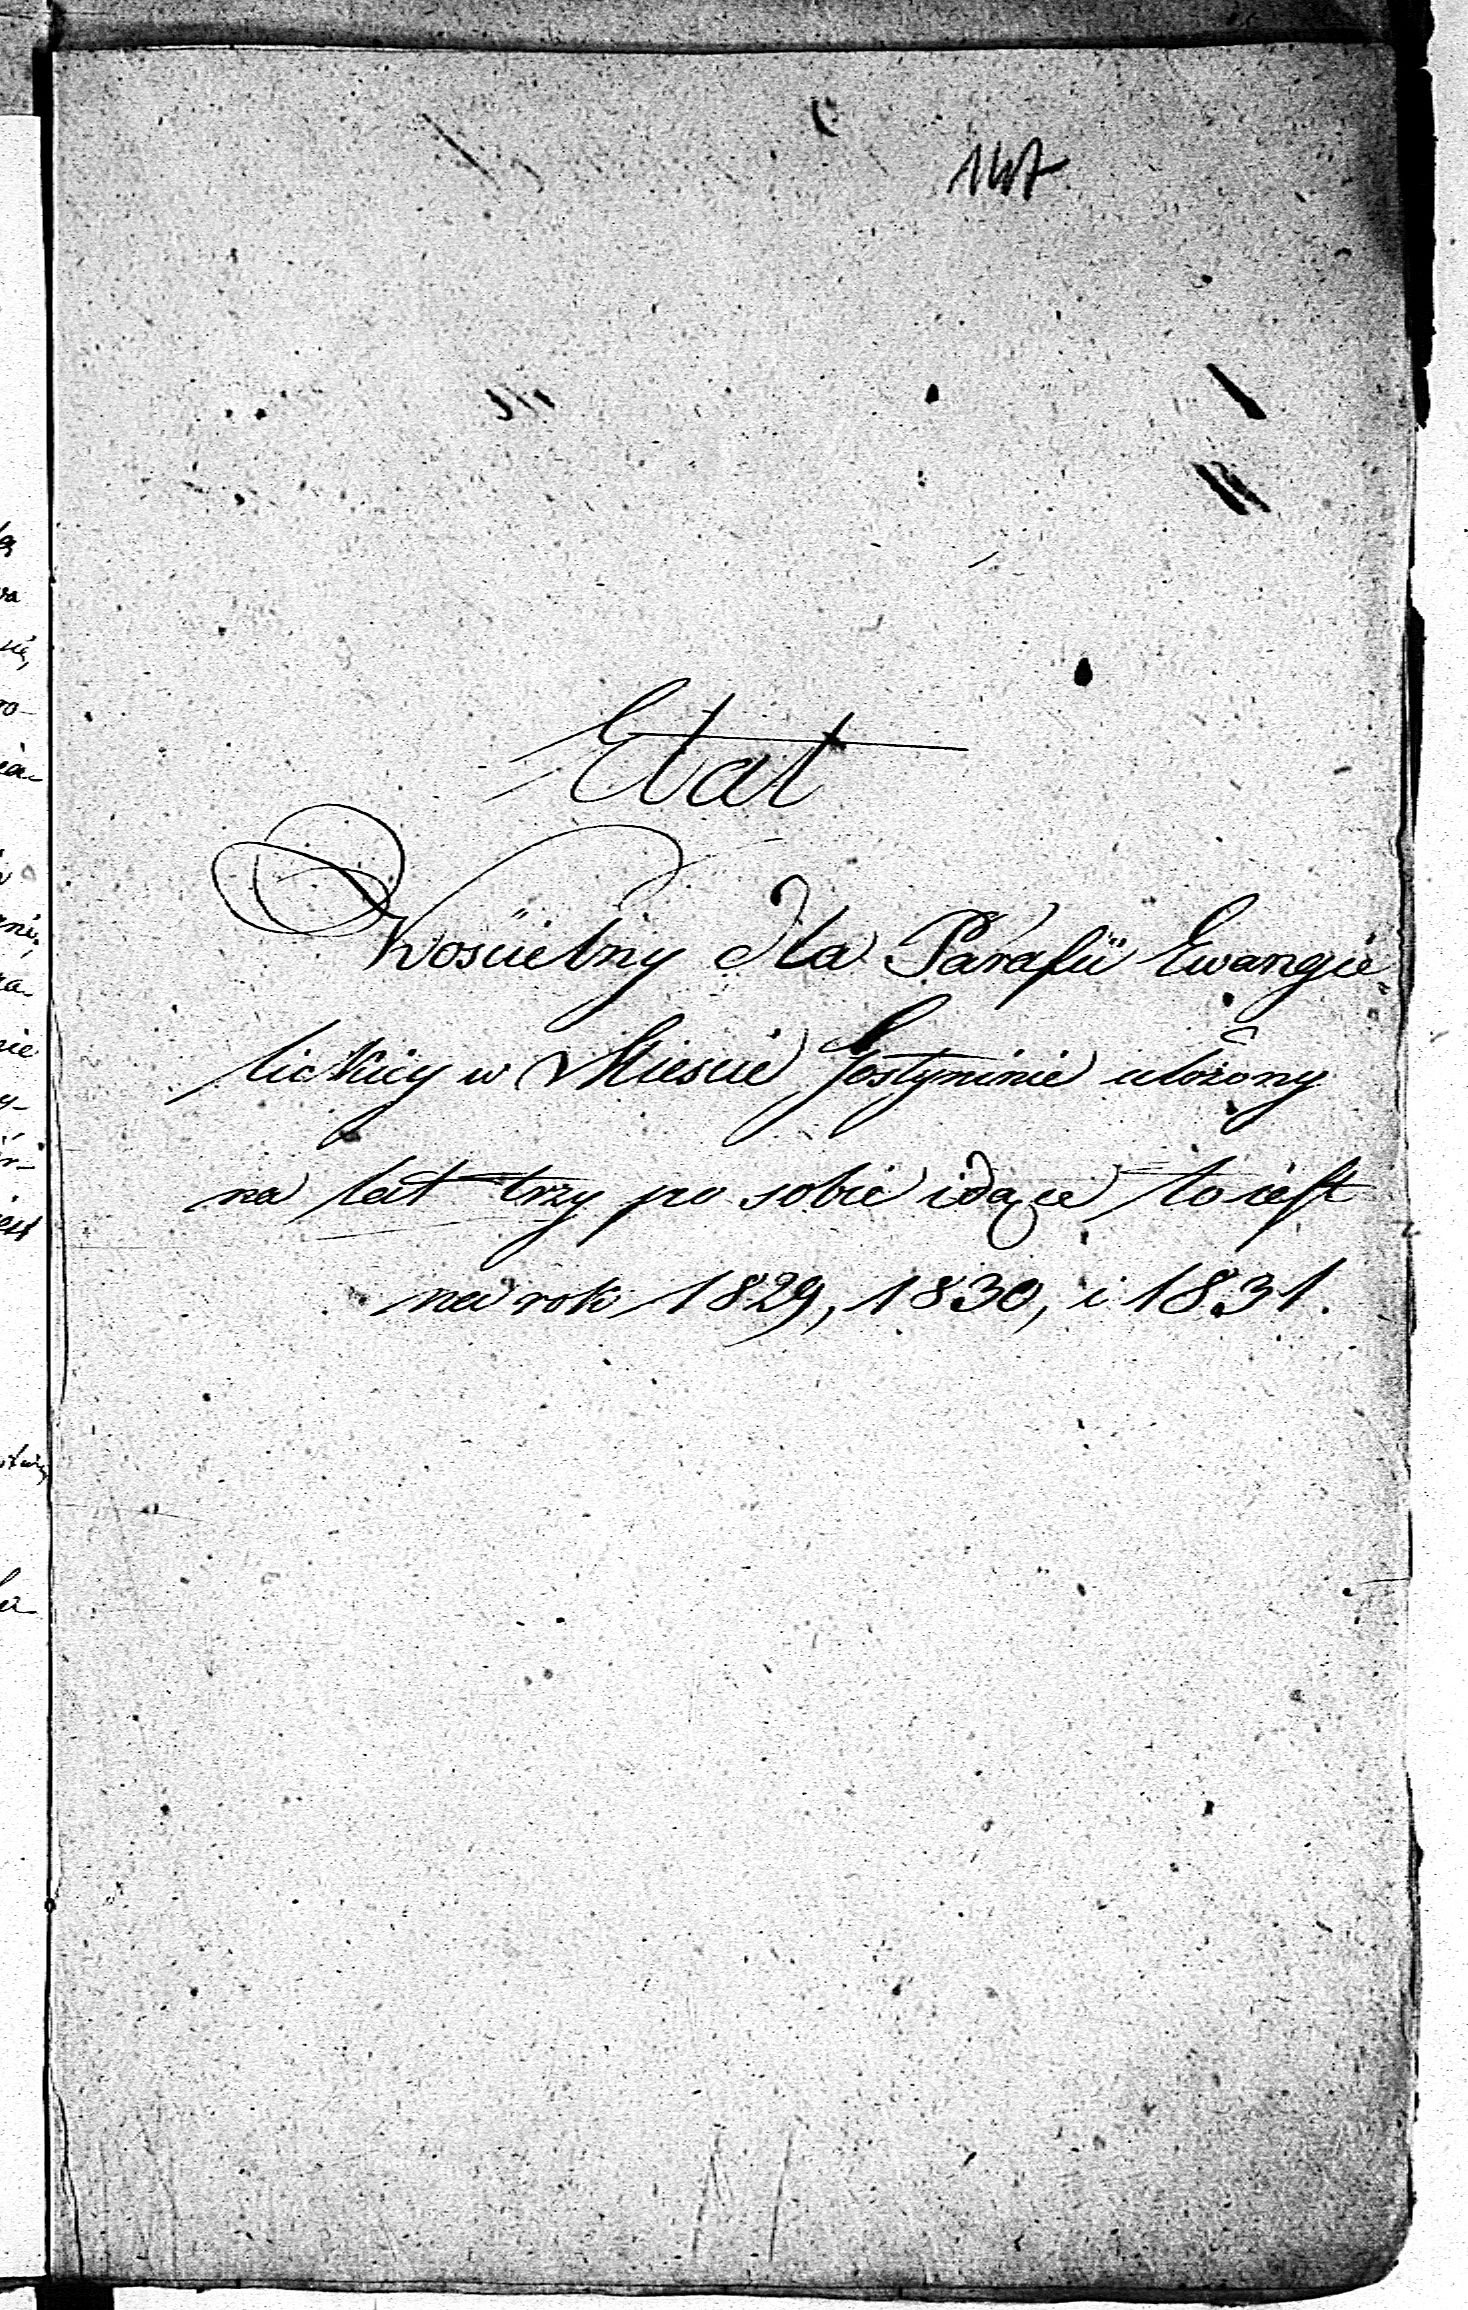 147
Etat
Kościelny dla Parafii Ewangie„
lickiey w Mieście Gostyninie ułożony
na lat trzy po sobie idące to iest
na rok 1829, 1830, i 1831.